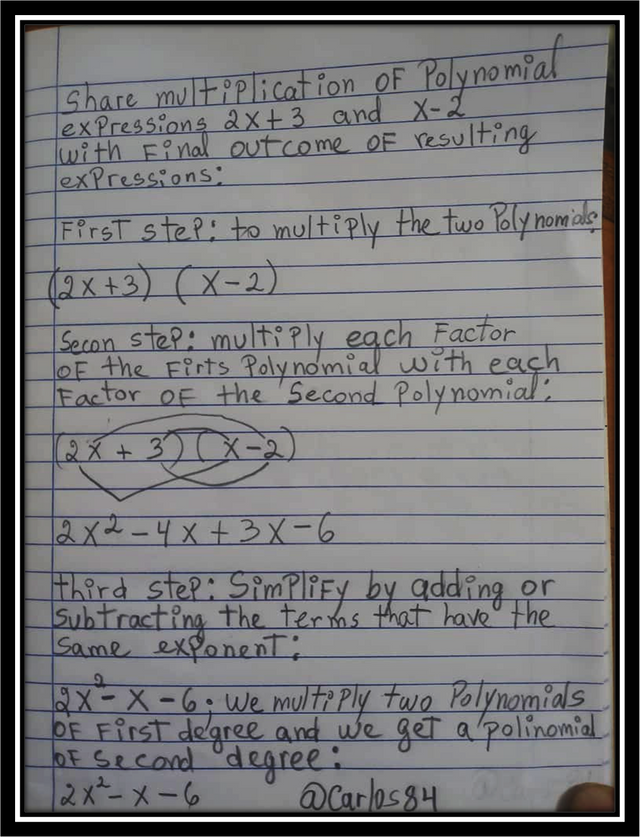 Share multiplication OF Polynomial
exPressions 2x+3 and x-2
with Final outcome OF resulting
exPressions:
First steP: to multiply the two Polynomials:
(2x+3) (x-2)
Secon steP: multiPly each Factor
OF the Firts Polynomial with each
Factor OF the Second Polynomial:
(2x + 3) (x-2)
2x²-4x+3x-6
third steP: SimPliFy by adding or
Subtracting the terms that have the
Same exPonent:
2x²-x-6; we multiPly two Polynomials
OF First degree and we get a polinomial
OF second degree:
2x²-x-6 @Carlos84